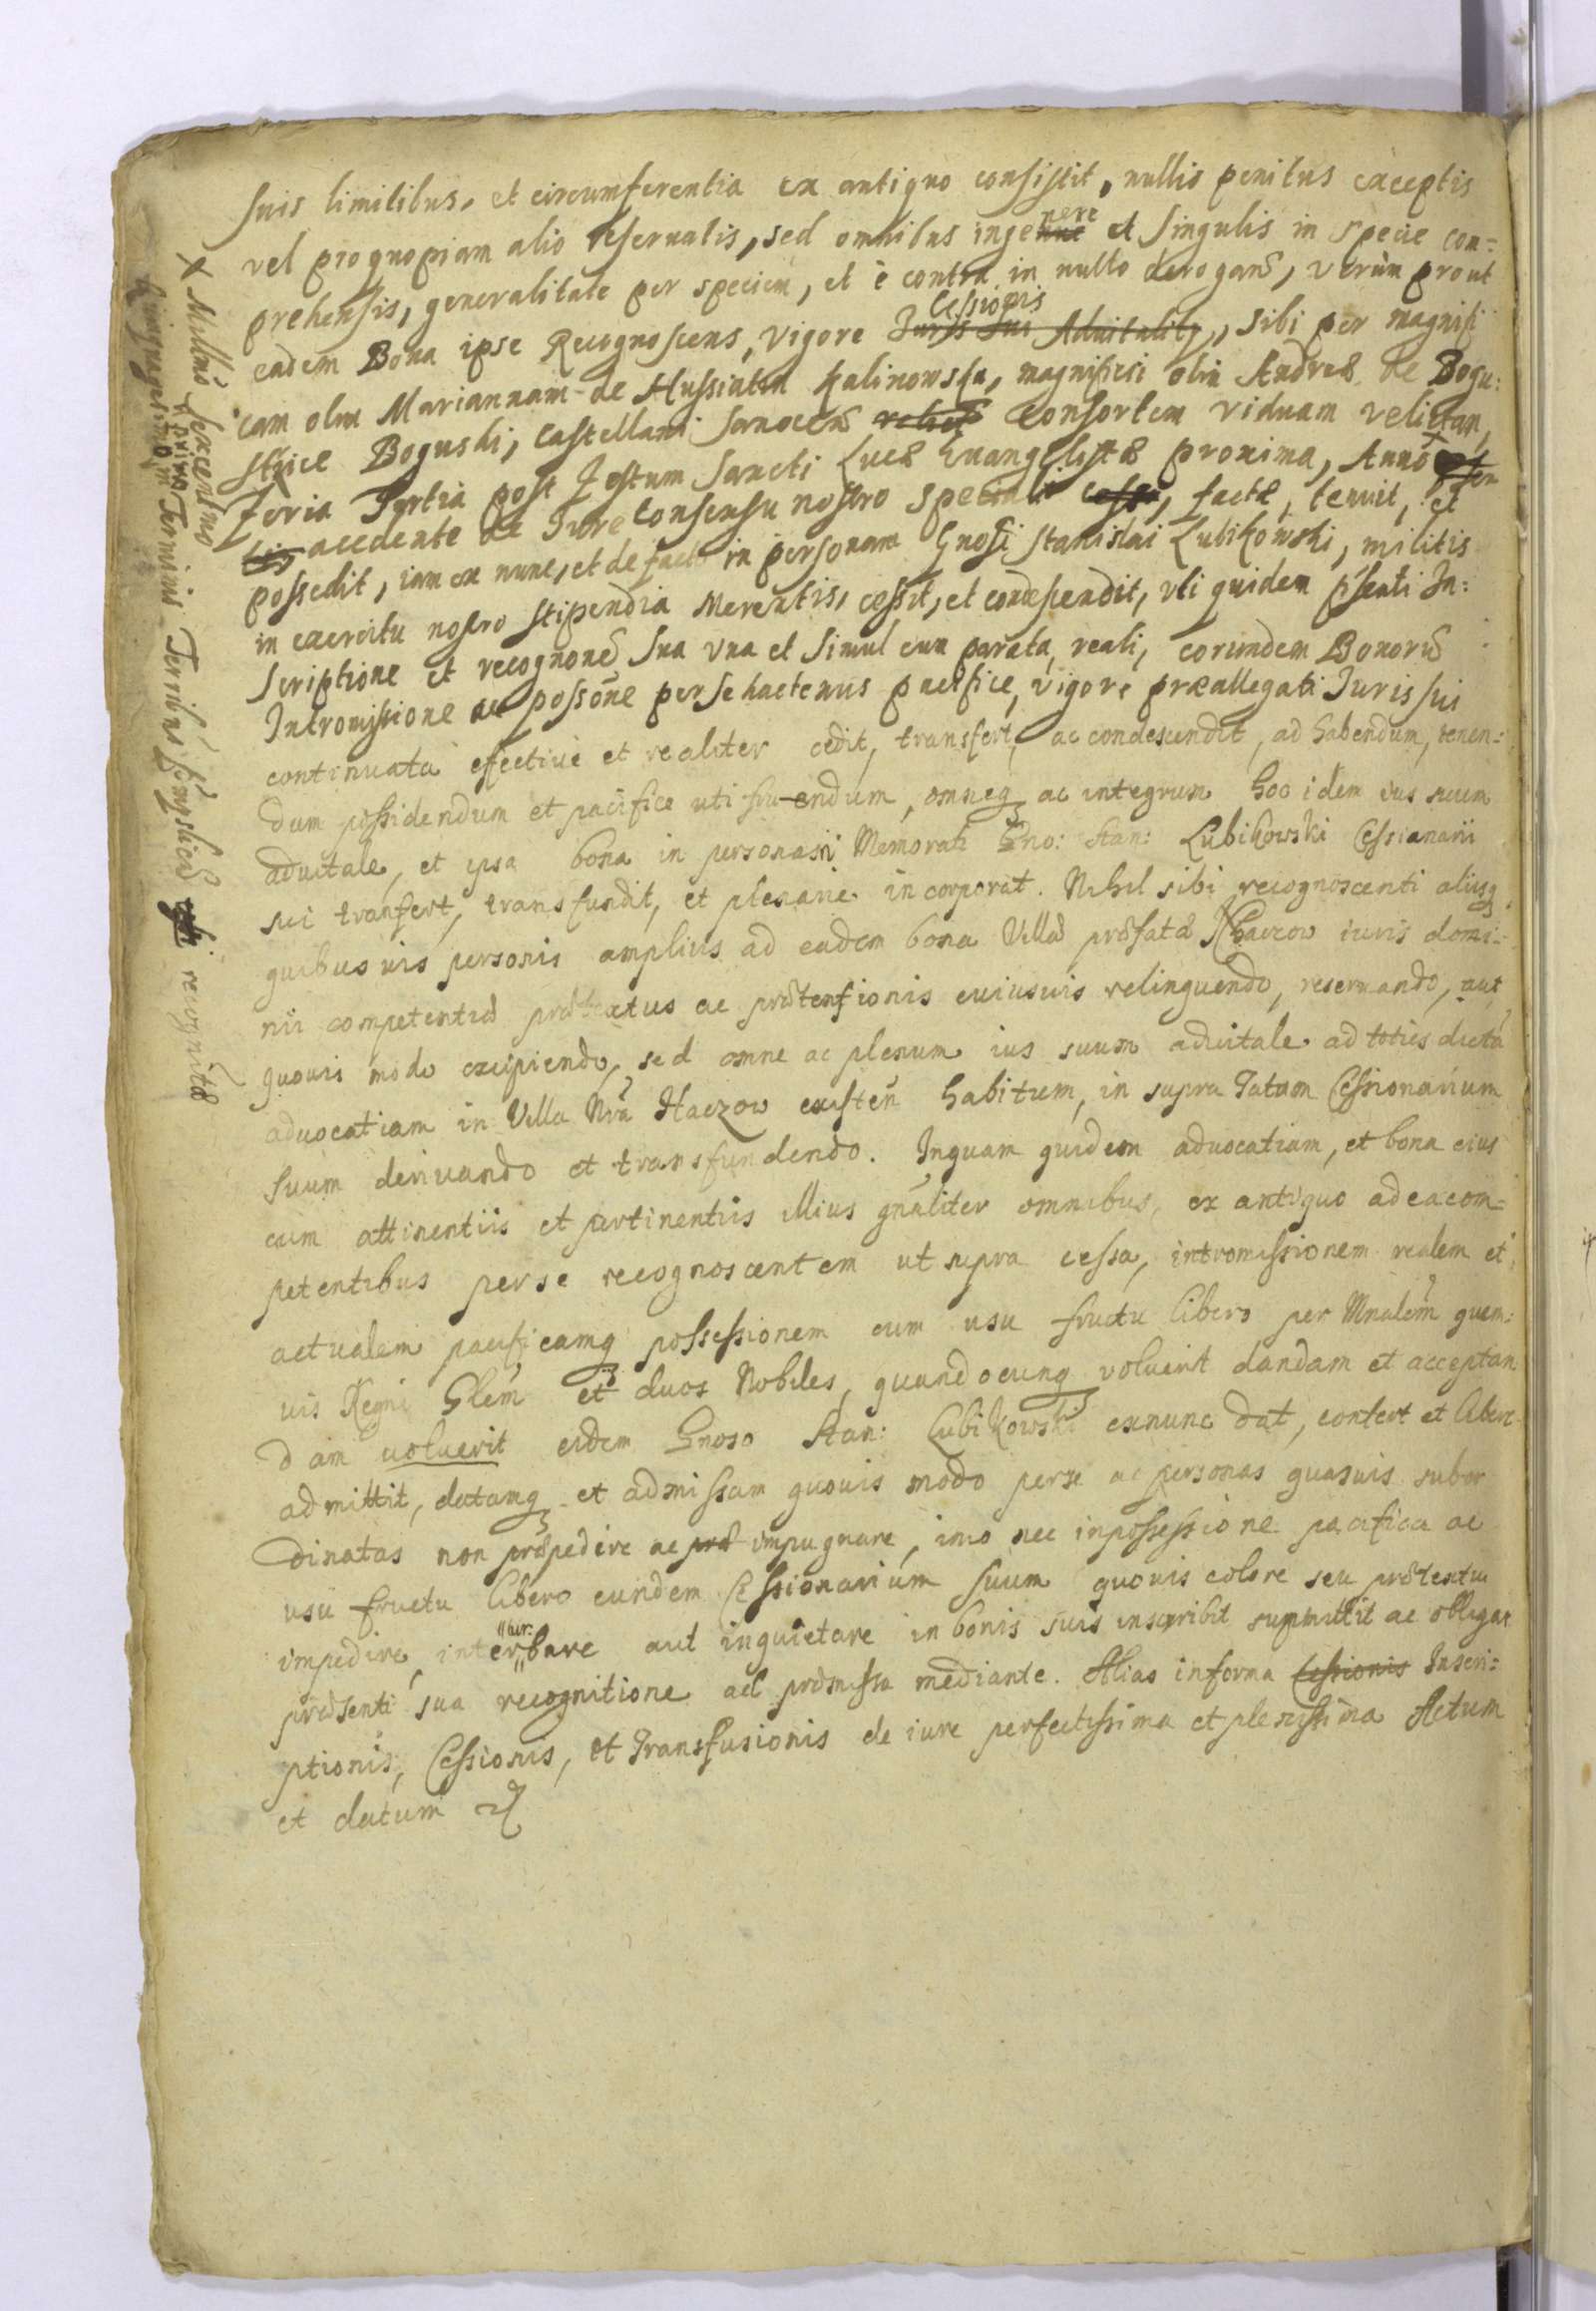 suis limitibus, et circumferentia ex antiquo consistit, nullis penitus exceptis
vel prognopiam alio reservatis, sed omnibus ingenere et singulis in specie com=
prehensis, generalitate per speciem, et è contra in nullo derogans, verùm prout
eadem Bona ipse Recognoscens, vigore Juris sui Advitalitis Cessionis, sibi per magnifi
cam olim Mariannam de Hussiatin Kalinowska, magnifici olim Andreæ de Bogu:
stpice Boguski, Castellani Sanocen relict consortem viduam relictam,
Feria Tertia post Festum Sancti Lucæ Euangelistæ proxima, Anno X
accedente de Jure Consensu nostro speciali cessa, factæ, tenuit, et
possedit, iam ex nunc, et de facto in personam Gnosi Stanislai Lubikowski, militis
in exercitu nostro stipendia Merentis, cessit, et condescendit, uti quidem pñsenti In:
scriptione et recognone sua una et simul cum parata, reali, eorumdem Bonorũ
Intromissione ac possõne per se hactenus pacifice, vigore præallegati Juris sui
continuata efective et realiter cedit, transfert, ac condescendit, ad habendum, tenen=
dum possidendum et pacifice uti fruendum, omneq ac integrum hoc idem ius suum
advitale, et ipsa bona in personam Memorati Gno: Stan: Lubikowski Cessionarii
sui tranfert, transfundit, et plenarie incorporat. Nihil sibi recognoscenti aliisq
quibus uis personis amplius ad eadem bona Villæ præfatæ Haczow iuris domi=
nii competentiæ prætextus ac prætensionis cuiusuis relinquendo, reseruando, aut
quouis modo excipiendo, sed omne ac plenum ius suum aduitale ad toties dictã
aduocatiam in Villa Nrã Haczow existeñ habitum, in supra Tatum Cessionarium
suum deriuando et transfundendo. Inquam quidem aduocatiam, et bona eius
cum attinentiis et pertinentiis illius gñaliter omnibus, ex antiquo ad ea com=
petentibus per se recognoscentem ut supra cessa, intromissionem realem et
actualem pacificamq possessionem cum usu fructu libero per Mnalem quem:
uis Regni Glem et duos Nobiles, quandocunq voluerit dandam et acceptan
dam voluerit eidem Gnoso Stan: Lubikowski exnunc dat, confert et libere
admittit, datamq et admissam quouis modo per se ac personas quasuis subor
dinatas non præpedire ac præ impugnare, imo nec in possessione pacifica ac
usu fructu libero eundem Cessionarium suum quouis colore seu prætextu
impedire, interbare tur: aut inquietare in bonis suis inscribit summittit ac obligat
præsenti sua recognitione ad præmissa mediante. Alias in forma Cessionis Inscri=
ptionis, Cessionis, et Transfusionis de iure perfectissima et plenissima Actum
et datum
X Millmo sexcentmo
Quinquagesimo primo Terminis Terribus recognitæ